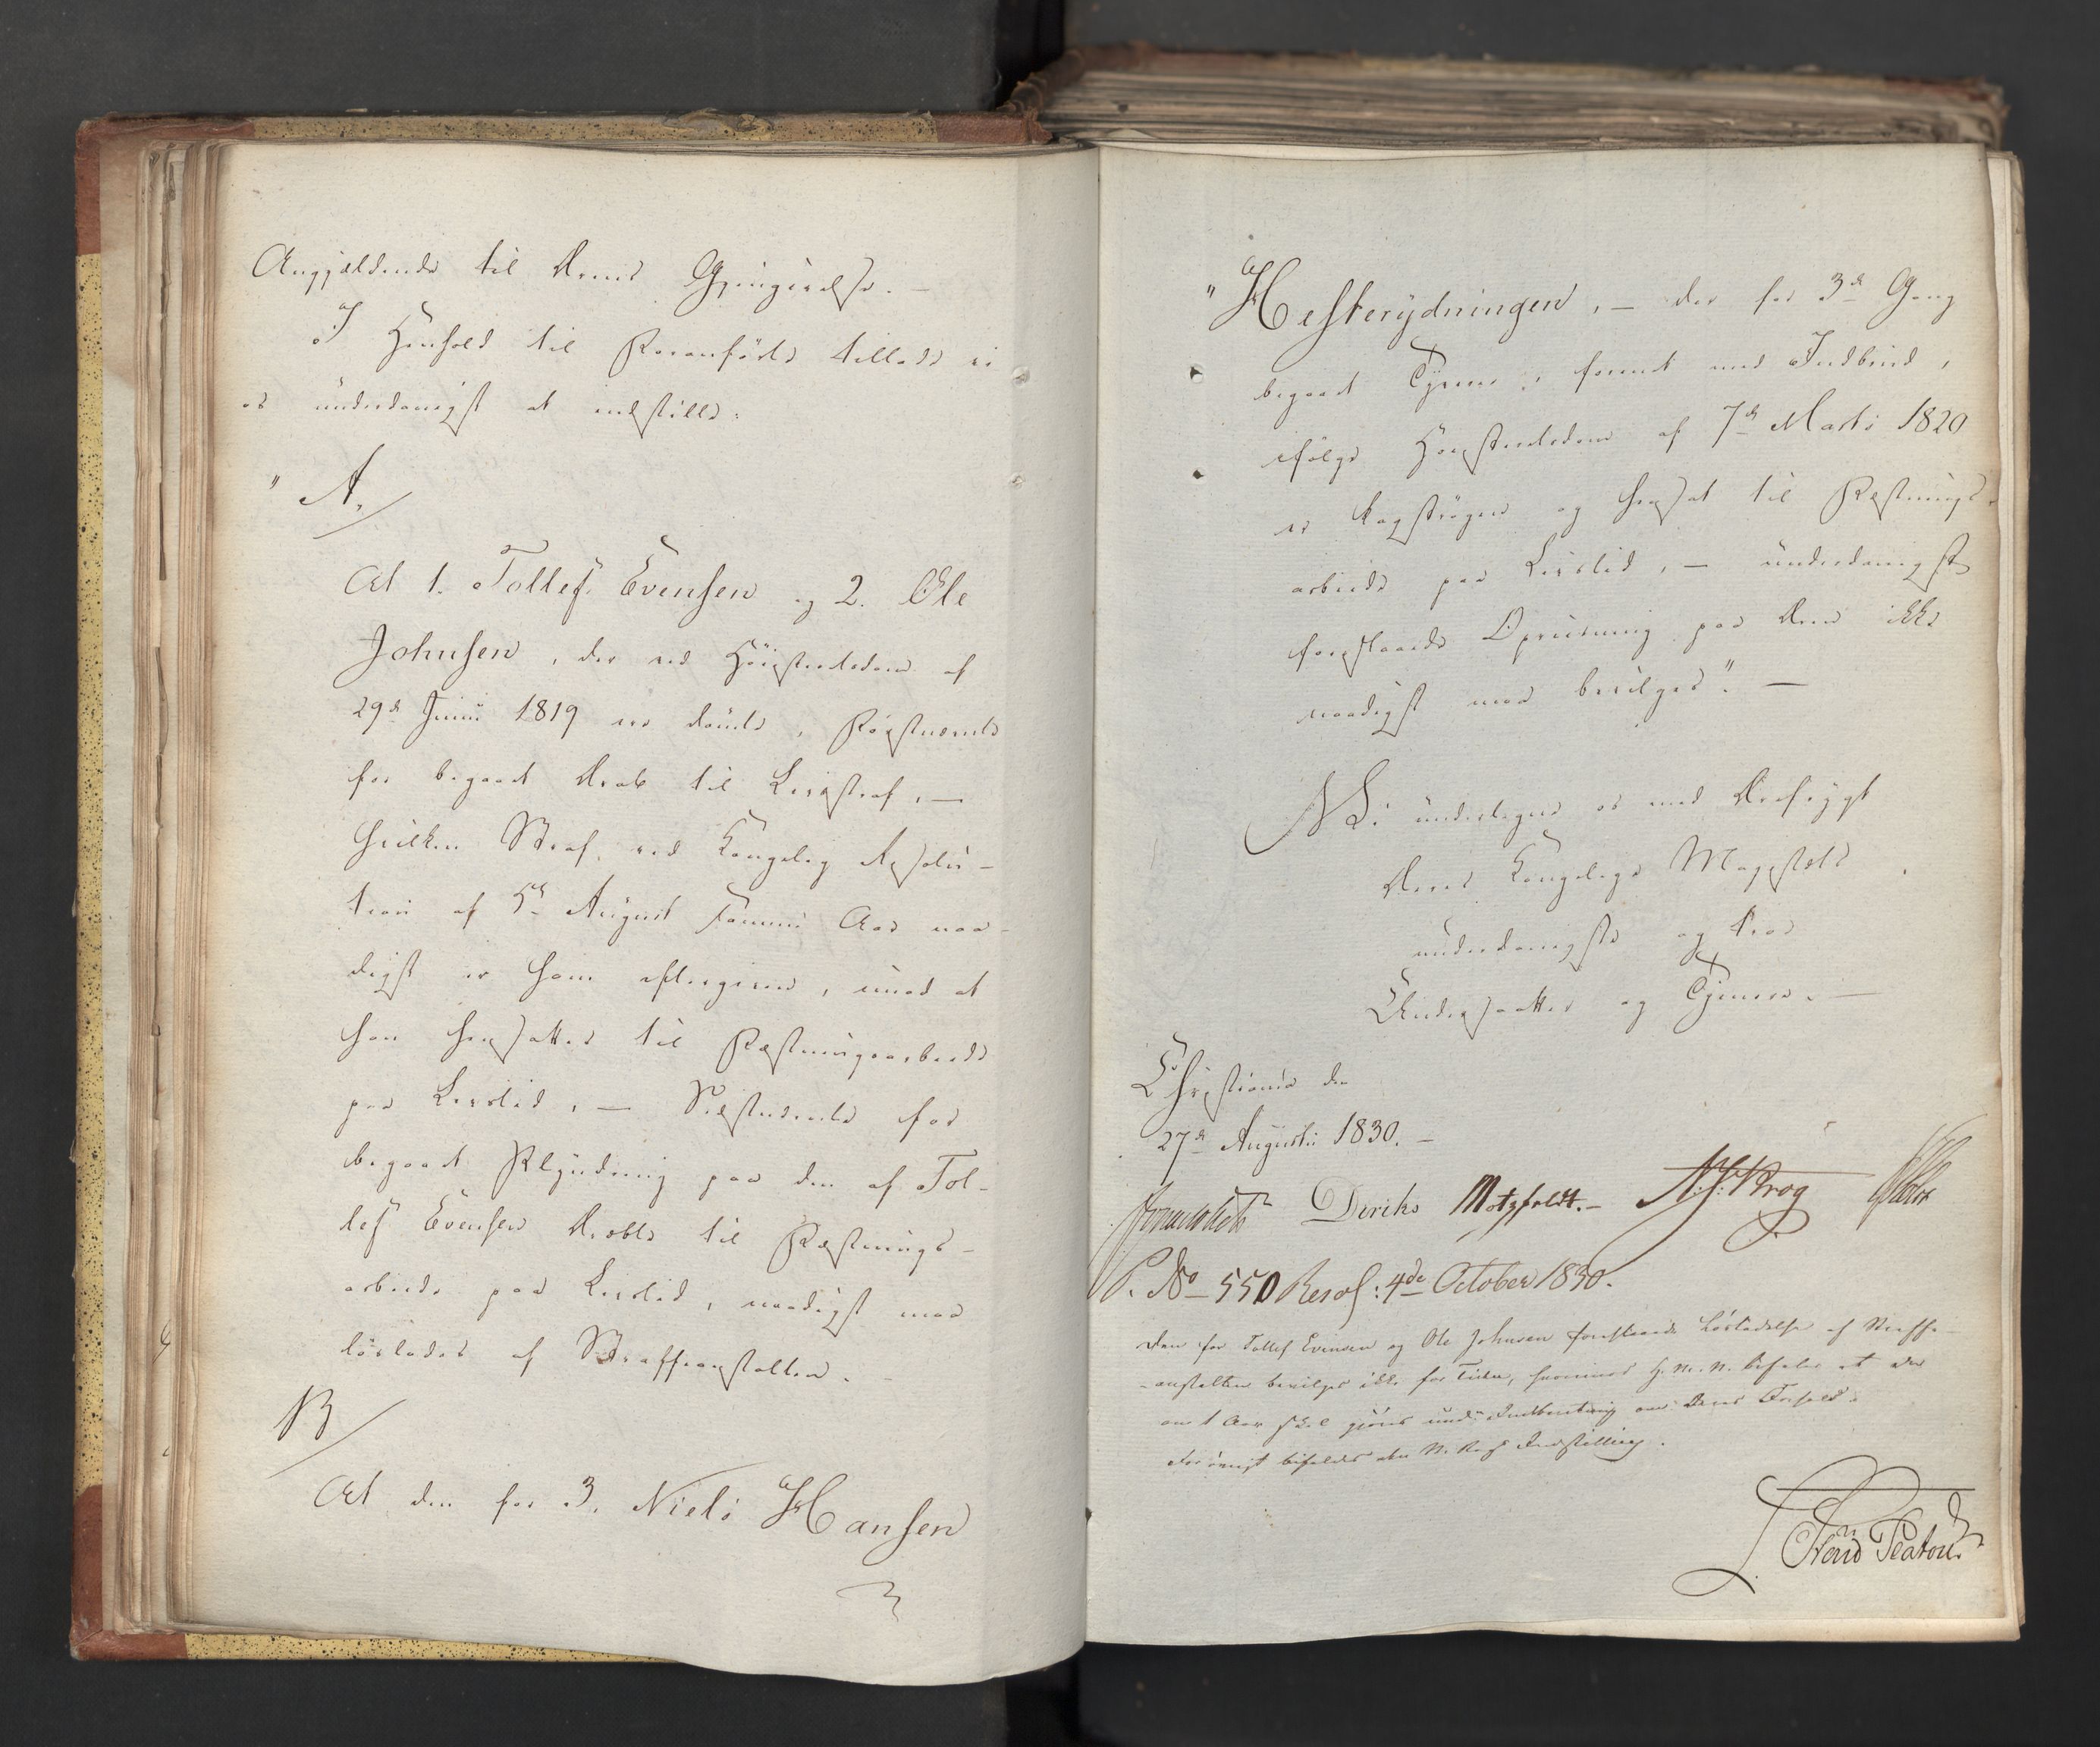 Angjældende til deres Gjengivelse. —
I Henhold til Foranförte tillade vi
os underdanigst at indstille:
" A,
At 1. Tollef Evensen og 2. Ole
Johnsen, der ved Höiesteretsdom af
29de Junii 1819 ere dömte, Förstnævnte
for begaaet Drab til Livsstraf, —
hvilken Straf, ved Kongelig Resolu-
tion af 5te August samme Aar naa-
digst er ham eftergiven, imod at
han hensattes til Fæstningsarbeide
paa Livstid, — Sidstnævnte for
begaaet Plyndring paa den af Tol-
lef Evensen dræbte til Fæstnings-
arbeide paa Livstid, naadigst maa
löslades af Straffeanstalten. —
B
At den for 3. Niels Hansen
" Hesterydningen, — der for 3de Gang
begaaet Tyverie, forenet med Indbrud,
ifölge Höiesteretsdom af 7de Marts 1820
er kagströgen og hensat til Fæstnings-
arbeide paa Livstid, — underdanigst
foreslaaede Opreisning paa Æren ikke
naadigst maa bevilges". —
Vi undertegne os med Ærefrygt
Deres Kongelige Majestæts
underdanigste og troe
Undersaatter og Tjenere. —
Christiania den
27de Augusti 1830. —
Diriks Motzfeldt. — Krog
P. No 550 Resol: 4de October 1830.
Den for Tollef Evensen og Ole Johnsen foreslaaede Lösladelse af Straffe-
-anstalten bevilges ikke for Tiden, hvorimod H. M. N. befaler at der
om 1 Aar skal gjöres und: Indberetning om deres Forhold.
Forövrigt bifaldes den N. Regs Indstilling.